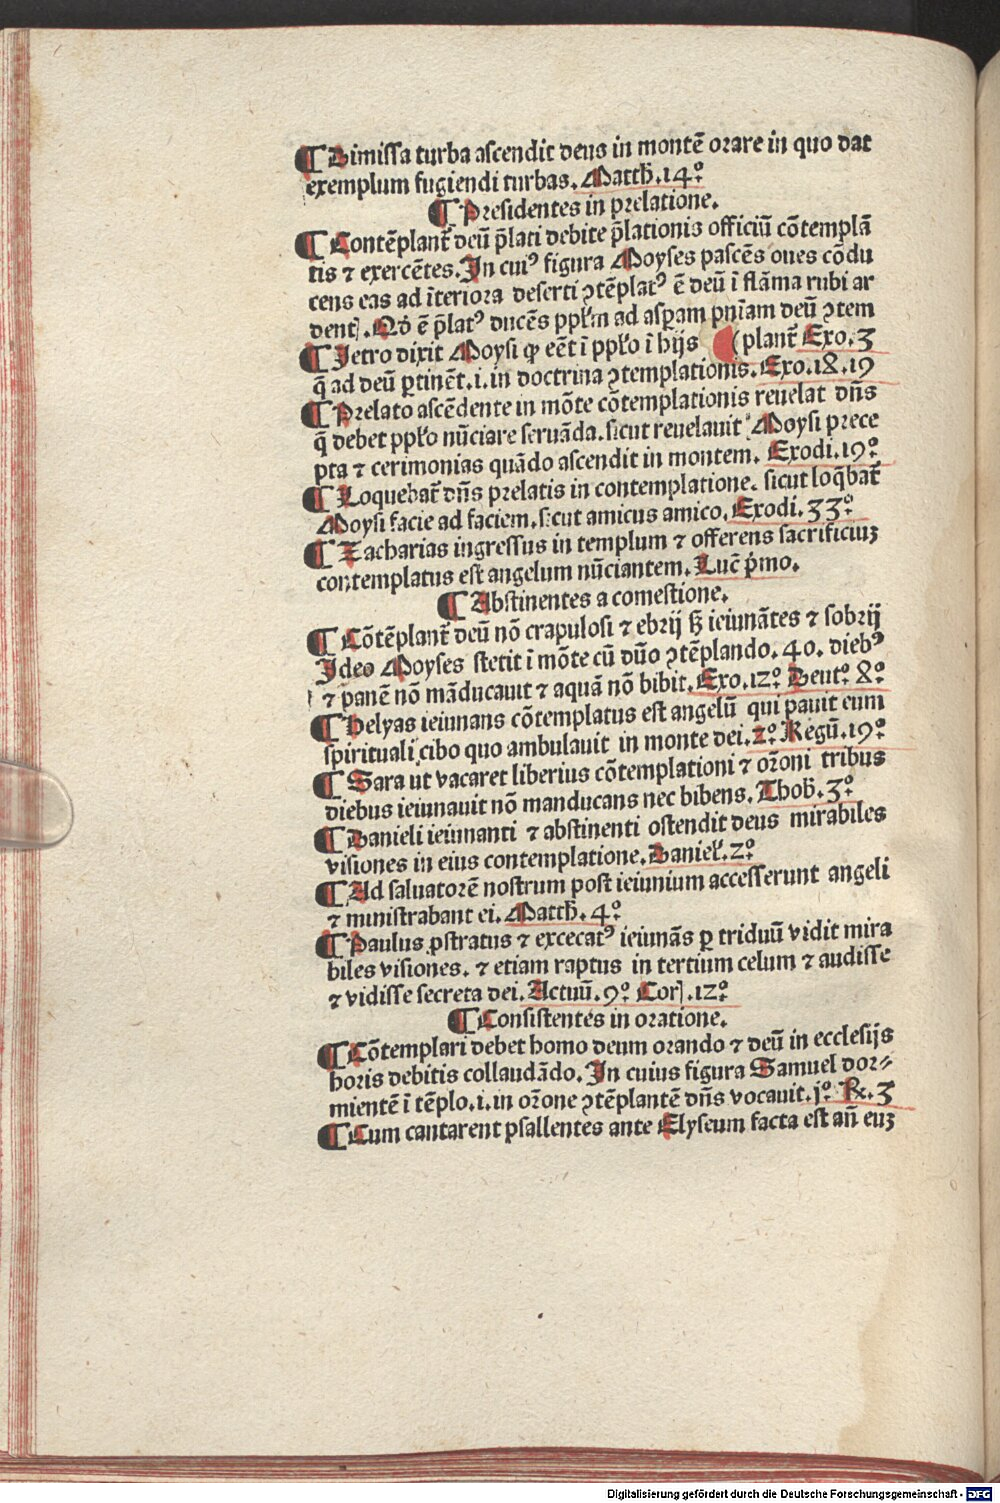 ¶ Dimissa turba ascendit deus in montē orare in quo dat
exemplum fugiendi turbas. Matth̄. 14°
¶ Presidentes in prelatione.
¶ Contēplant᷑ deū p̄lati debite p̄lationis officiū cōtemplā
tis ⁊ exercētes. In cuiꝰ figura Moyses pascēs oues cōdu
cens eas ad īteriora deserti ꝯtēplatꝰ ē deū ī flāma rubi ar
dentꝭ. Qď ē p̄latꝰ ducēs ppl̄m ad asꝑam pn̄iam deū ꝯtem
¶ Jetro dixit Moysi ꝙ eēt ī ppl̄o ī hijs (plant᷑ Exo. 3
q̄ ad deū ꝑtinēt .i. in doctrina ꝯtemplationis. Exo. 18. 19
¶ Prelato ascēdente in mōte cōtemplationis reuelat dn̄s
q̄ debet ppl̄o nūciare seruāda. sicut reuelauit Moysi prece
pta ⁊ cerimonias quādo ascendit in montem. Exodi. 19°
¶ Loquebat᷑ dn̄s prelatis in contemplatione. sicut loq̄bat᷑
Moysi facie ad faciem. sicut amicus amico. Exodi. 33°
¶ Zacharias ingressus in templum ⁊ offerens sacrificiuꝫ
contemplatus est angelum nūciantem. Luc̄ p̄mo.
¶ Abstinentes a comestione.
¶ Cōtēplant᷑ deū nō crapulosi ⁊ ebrij sꝫ ieiunātes ⁊ sobrij
Ideo Moyses stetit ī mōte cū dn̄o ꝯtēplando. 40. diebꝰ
⁊ panē nō māducauit ⁊ aquā nō bibit. Exo. 12° Deut° 8°
¶ Helyas ieiunans cōtemplatus est angelū qui pauit eum
spirituali cibo quo ambulauit in monte dei. 2° Regū. 19°
¶ Sara ut vacaret liberius cōtemplationi ⁊ or̄oni tribus
diebus ieiunauit nō manducans nec bibens. Thob̄. 3°
¶ Danieli ieiunanti ⁊ abstinenti ostendit deus mirabiles
visiones in eius contemplatione. Daniel̄. 2°
¶ Ad saluatorē nostrum post ieiunium accesserunt angeli
⁊ ministrabant ei. Matth̄. 4°
¶ Paulus ꝓstratus ⁊ excecatꝰ ieiunās ꝑ triduū vidit mira
biles visiones. ⁊ etiam raptus in tertium celum ⁊ audisse
⁊ vidisse secreta dei. Actuū. 9° Corꝭ. 12°
¶ Consistentes in oratione.
¶ Cōtemplari debet homo deum orando ⁊ deū in ecclesijs
horis debitis collaudādo. In cuius figura Samuel dor⸗
mientē ī tēplo .i. in or̄one ꝯtēplantē dn̄s vocauit. j° Rx. 3
¶ Cum cantarent psallentes ante Elyseum facta est an̄ euꝫ
Digitalisierung gefördert durch die Deutsche Forschungsgemeinschaft - DFG